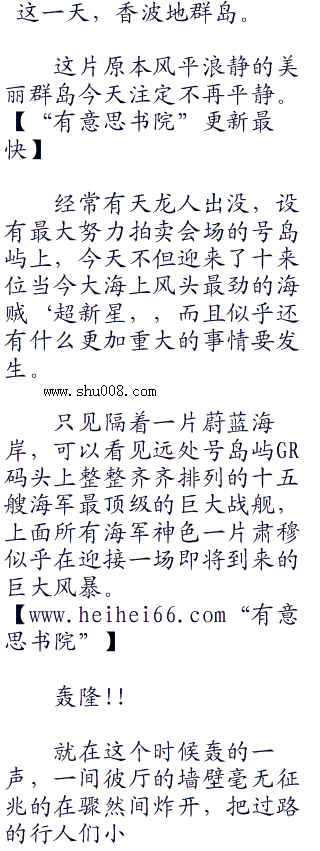 这一天，香波地群岛。
这片原本风平浪静的美
丽群岛今天注定不再平静。
【“有意思书院”更新最
快】
经常有天龙人出没，设
有最大努力拍卖会场的号岛
屿上，今天不但迎来了十来
位当今大海上风头最劲的海
贼‘超新星，，而且似乎还
有什么更加重大的事情要发
生。
www.shu008.com
只见隔着一片蔚蓝海
岸，可以看见远处号岛屿GR
码头上整整齐齐排列的十五
艘海军最顶级的巨大战舰，
上面所有海军神色一片肃穆
似乎在迎接一场即将到来的
巨大风暴。
【www.heihei66.com“有意
思书院”】
轰隆!!
就在这个时候轰的一
声，一间彼厅的墙壁毫无征
兆的在骤然间炸开，把过路
的行人们小